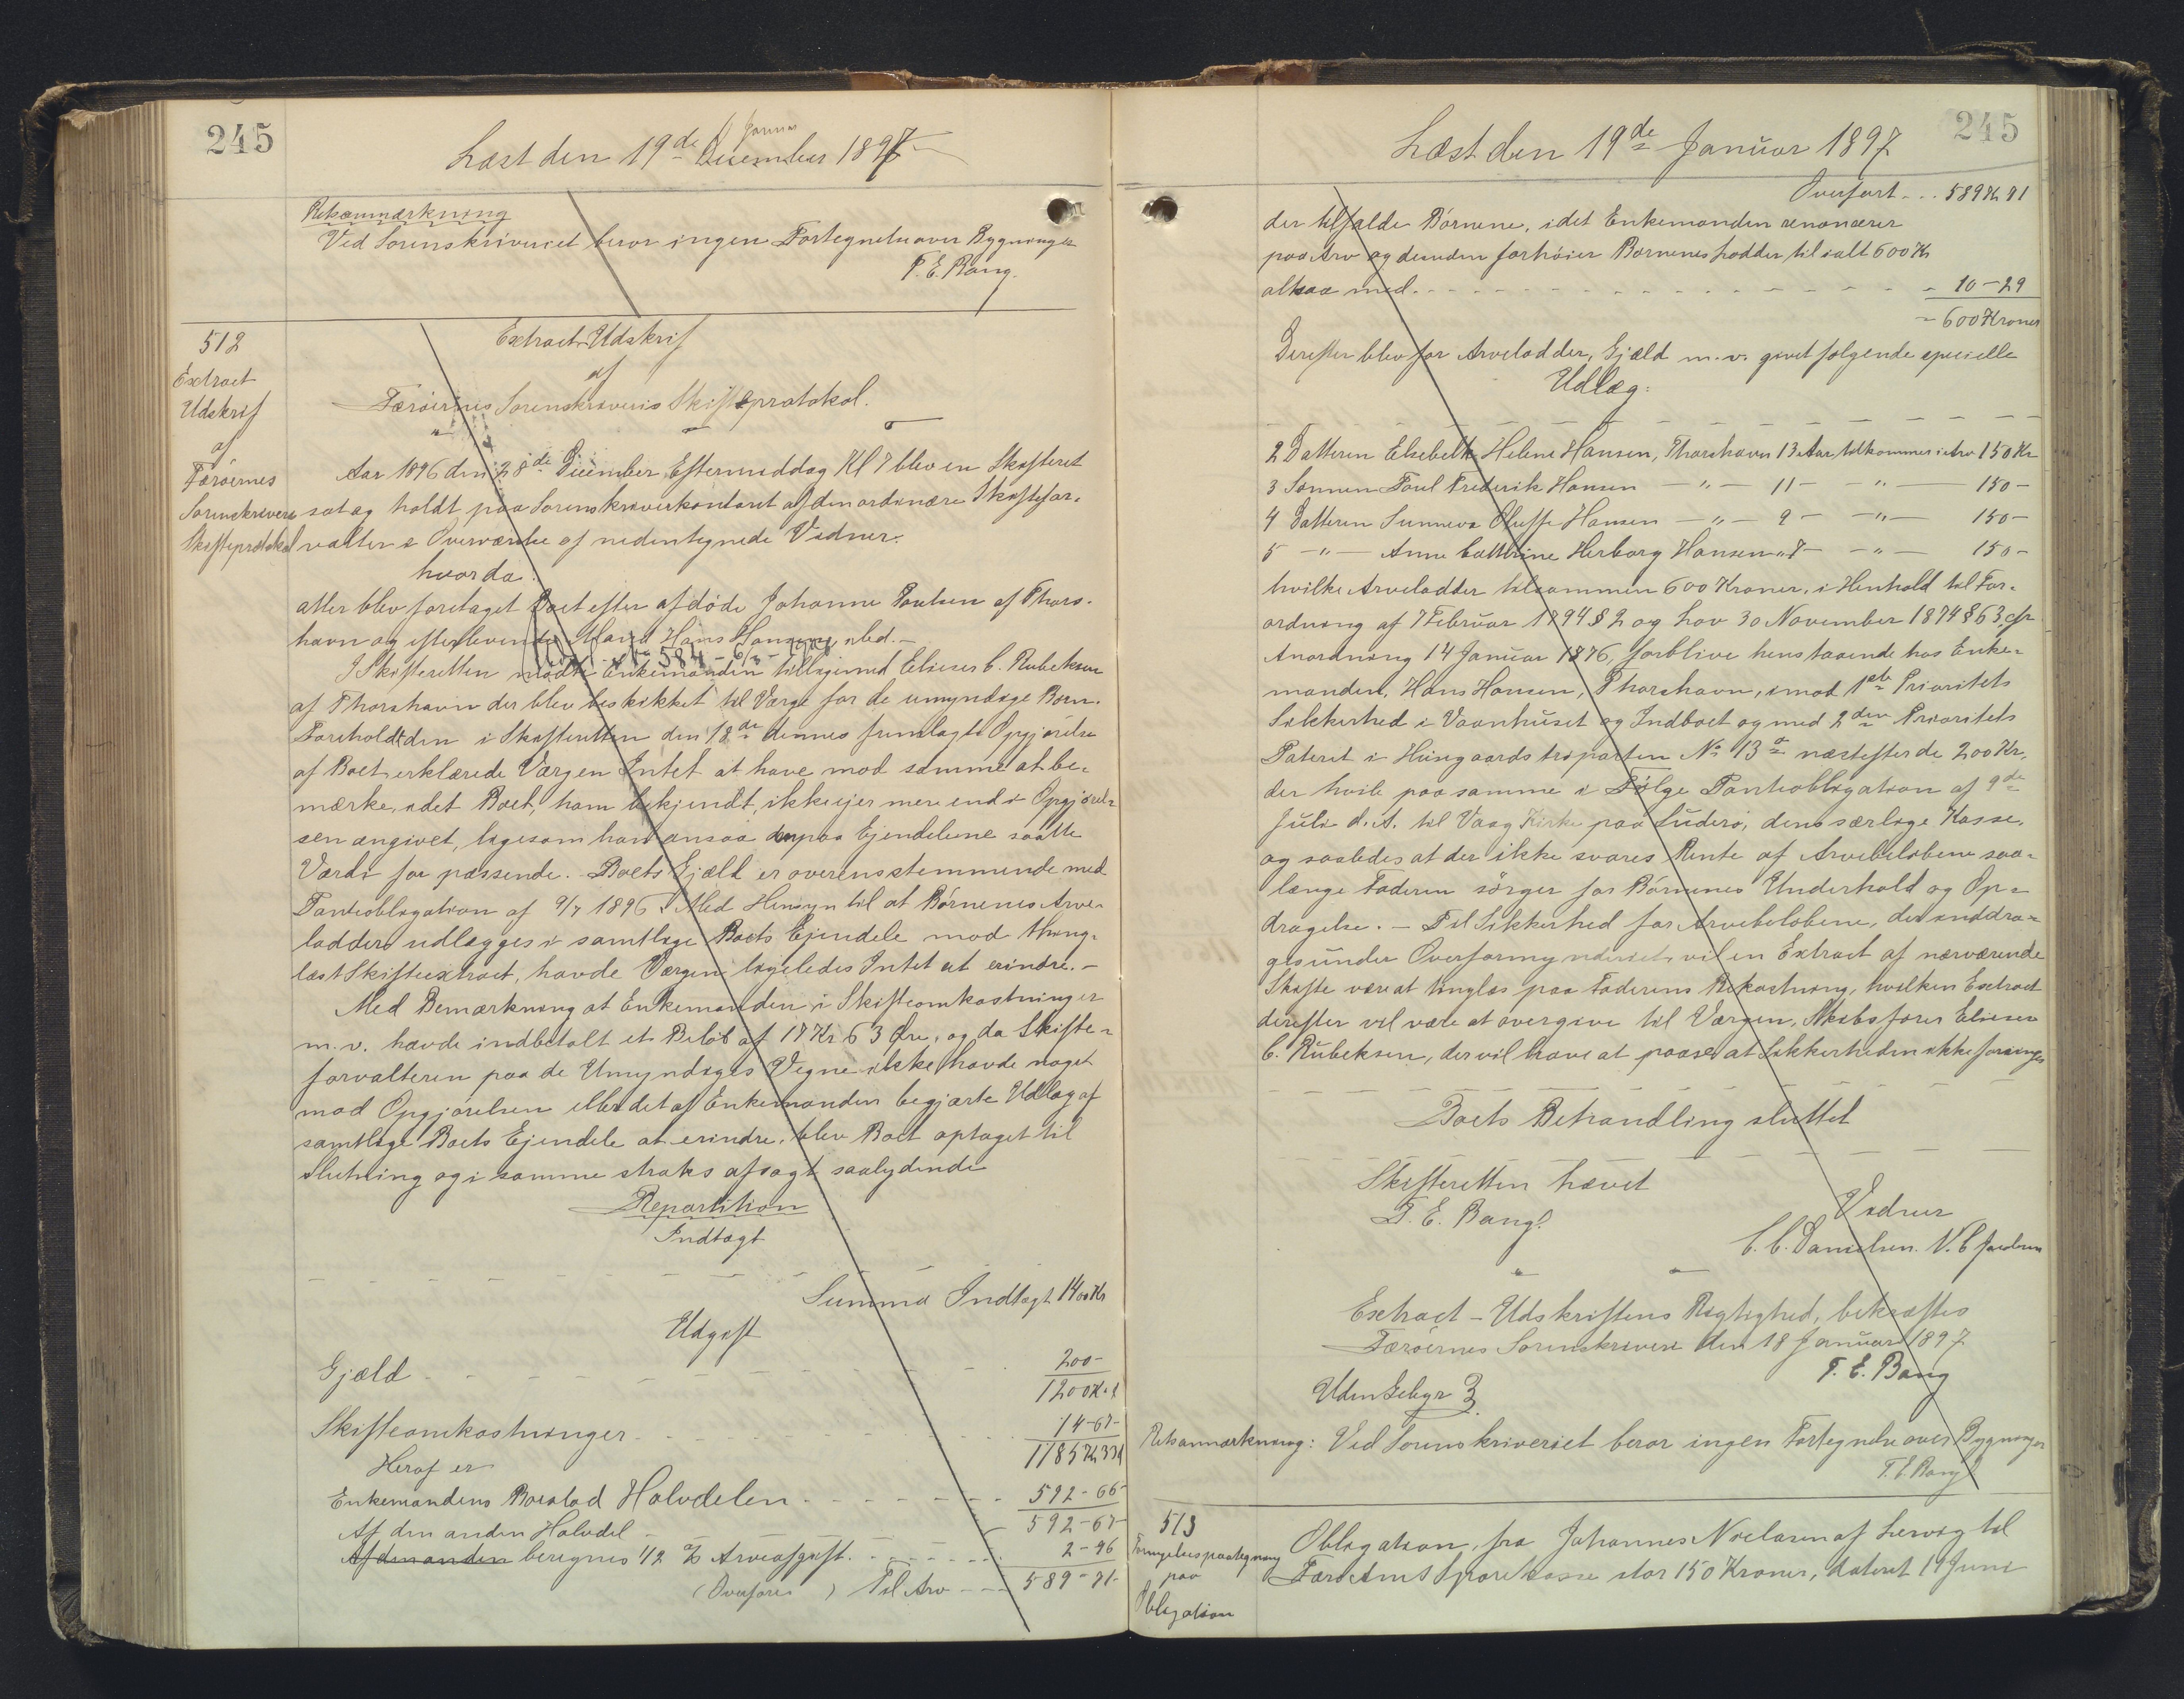 245
Læst den 19de December Januar 1897
Retsanmærkning
Ved Sorenskriveriet beror ingen Fortegnelse over Bygninger
T. E. Bang.
512
Extract
Udskrif
af
Færöernes
Sorenskriveris
Skifteprotokol
Extract-Udskrif
af
Færöernes Sorenskriveris Skifteprotokol.
Aar 1896 den 28de December Eftermiddag Kl 7 blev en Skifteret
sat og holdt paa Sorenskriverkontoret af den ordinære Skiftefor-
valter i Overværelse af nedentegnede Vidner.
hvorda:
atter blev foretaget Boet efter afdöde Johanne Poulsen af Thors-
havn og efterlevende Mand Hans Hansen, sbed.-
584-6/3-1908
I Skifteretten mödte Enkemanden tilligemed Elieser C. Rubeksen
af Thorshavn der blev beskikket til Værge for de umyndige Börn.
Foreholdt den i Skifteretten den 18de dennes fremlagte Opgjörelse
af Boet erklærede Værgen Intet at have mod samme at be-
mærke, idet Boet, ham bekjendt, ikke ejer mere end i Opgjörel-
sen angivet, ligesom han ansaa den paa Ejendelene satte
Værdi for passende. Boets Gjæld er overensstemmende med
Panteobligation af 9/7 1896. Med Hensyn til at Börnenes Arve-
lodder udlægges i samtlige Boets Ejendele mod thing-
læst Skifteextract, havde Værgen ligeledes Intet at erindre.-
Med Bemærkning at Enkemanden i Skifteomkostninger
m.v. havde indbetalt et Belöb af 17 Kr 63 Öre, og da Skifte-
forvalteren paa de Umyndiges Vegne ikke havde noget
mod Opgjörelsen eller det af Enkemanden begjærte Udlæg af
samtlige Boets Ejendele at erindre, blev Boet optaget til
Slutning og i samme straks afsagt saalydende
Repartition
Indtægt
Summa Indtægt 1400 Kr
Udgift
Gjæld 200-
1200 Kr.
Skifteomkostninger 14-67-
Heraf er 1185 Kr 33
Enkemandens Boeslod Halvdelen 592-66-
Af den anden Halvdel - 592-67-
Af den anden beregnes 1/2 % Arveafgift. 2-96
(Overföres) Til Arv 589-71-
245
Læst den 19de Januar 1897
Overfört... 589 Kr 71
der tilfalde Börnene, idet Enkemanden renoncerer
paa Arv og desuden forhöier Börnenes Lodder til ialt 600 Kr
altsaa med 10-29
= 600 Kroner
Derefter blev for Arvelodder, Gjæld m.v. givet fölgende specielle
Udlæg:
2 Datteren Elsebeth Helene Hansen, Thorshavn 13 Aar tilkommer i Arv 150 Kr
3 Sönnen Poul Frederik Hansen - " - 11 - - " - 150-
4 Datteren Sunneva Oluffe Hansen - " - 9 - - " - 150-
5 - " - Anne Cathrine Herborg Hansen " 7 - - " - 150-
hvilke Arvelodder tilsammen 600 Kroner, i Henhold til For-
ordning af 7 Februar 1794 § 2 og Lov 30 November 1874 § 63, cfr
Anordning 14 Januar 1876, forblive henstaaende hos Enke-
manden, Hans Hansen, Thorshavn, imod 1ste Prioritets
Sikkerhed i Vaanhuset og Indboet og med 2den Prioritets
Panteret i Husgaards tröparten No 13a næstefter de 200 Kr.
der hvile paa samme i Fölge Panteobligation af 9de
Juli d. A. til Vaag Kirke paa Suderö, dens særlige Kasse,
og saaledes at der ikke svares Rente af Arvebelöbene saa-
længe Faderen sörger for Börnenes Underhold og Op-
dragelse. - Til Sikkerhed for Arvebelöbene, der inddra-
ges under Overformynderiet, vil en Extract af nærværende
Skifte være at tinglæs paa Faderens Bekostning, hvilken Extract
derefter vil være at overgive til Værgen, Skibsförer Elieser
C. Rubeksen, der vil have at paase, at Sikkerheden ikke forringes
Boets Behandling sluttet
Skifteretten hævet
T. E. Bang.
Vidner
C. C. Danielsen. N. C. Jacobsen
Extract-Udskriftens Rigtighed, bekræftes
Færöernes Sorenskriveri den 18 Januar 1897
T. E. Bang
Uden Gebyr
Retsanmærkning: Ved Sorenskriveriet beror ingen Fortegnelse over Bygninger
T. E. Bang
513
Fornyelsespaategning
paa
Obligation
Obligation, fra Johannes Niclasen af Lervig til
Færö Amts Sparekasse stor 150 Kroner, dateret 19 Juni